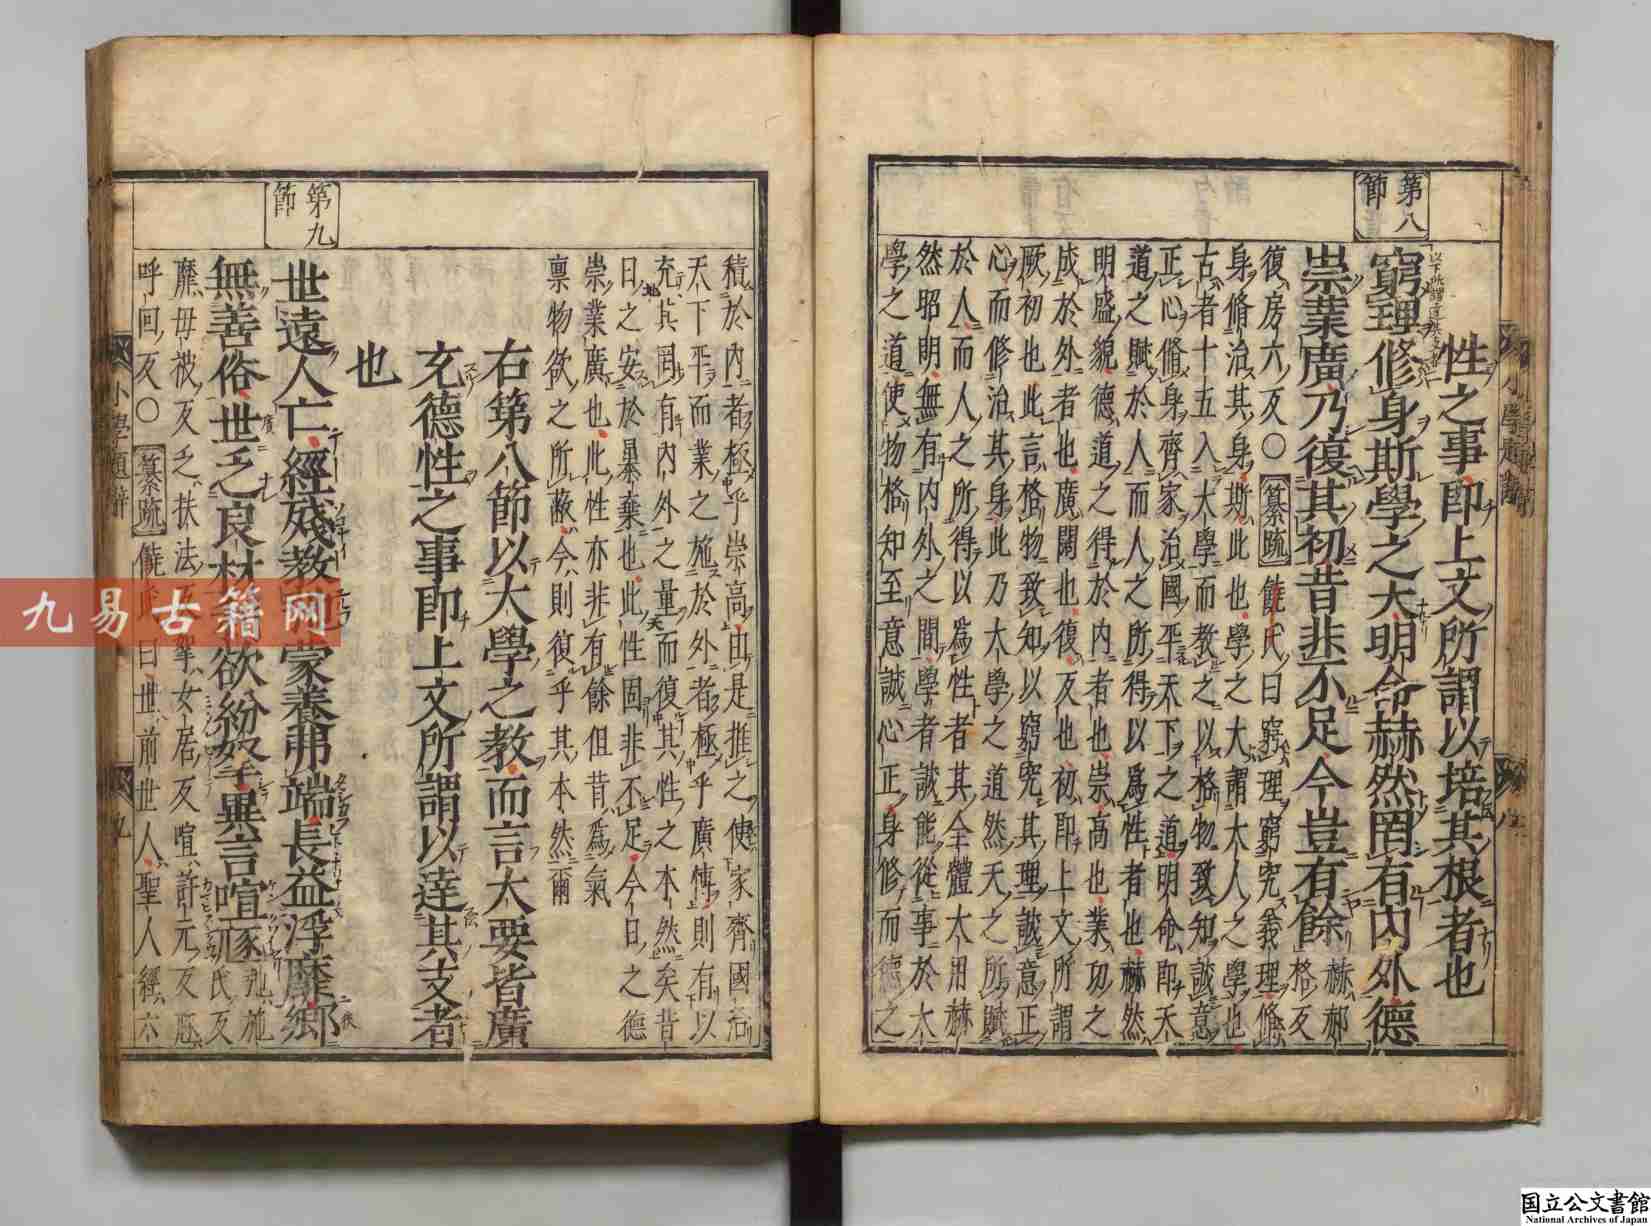 第八節
性之事即上文所謂以培其根者也
窮理修身斯學之大明命赫然罔有內外德
崇業廣乃復其初昔非不足今豈有餘赫郝格反
復房六反〇纂疏饒氏曰窮理窮究義理脩
身脩治其身斯此也學之大謂大人之學也
古者十五入大學而教之以格物致知誠意
正心脩身齊家治國平天下之道明命即天
道之賦於人而人之所得以為性者也赫然
明盛貌德道之得於內者也崇高也業功之
成於外者也廣闊也復反也初即上文所謂
厥初也此言格物致知以窮究其理誠意正
心而修治其身此乃大學之道然天之所賦
於人而人之所得以為性者其全體大用赫
然昭明無有內外之間學者誠能從事於大
學之道使物格知至意誠心正身修而德之
積於內者極乎崇高由是推之使家齊國治
天下平而業之施於外者極乎廣博則有以
充其罔有內外之量而復其性之本然矣昔
日之安於暴棄也此性固非不足今日之德
崇業廣也此性亦非有餘但昔為氣
禀物欲之所蔽今則復乎其本然爾
右第八節以大學之教而言大要皆廣
充德性之事即上文所謂以達其支者
也
第九節
世遠人亡經殘教弛蒙養弗端長益浮靡鄉
無善俗世乏良材利欲紛拏異言喧豗弛施氏反
靡毋被反乏扶法反拏女居反喧許元反豗
呼回反〇纂疏饒氏曰世前世人聖人經六
小學題辭
九
小學題辭
八
九易古籍网
国立公文書館
National Archives of Japan